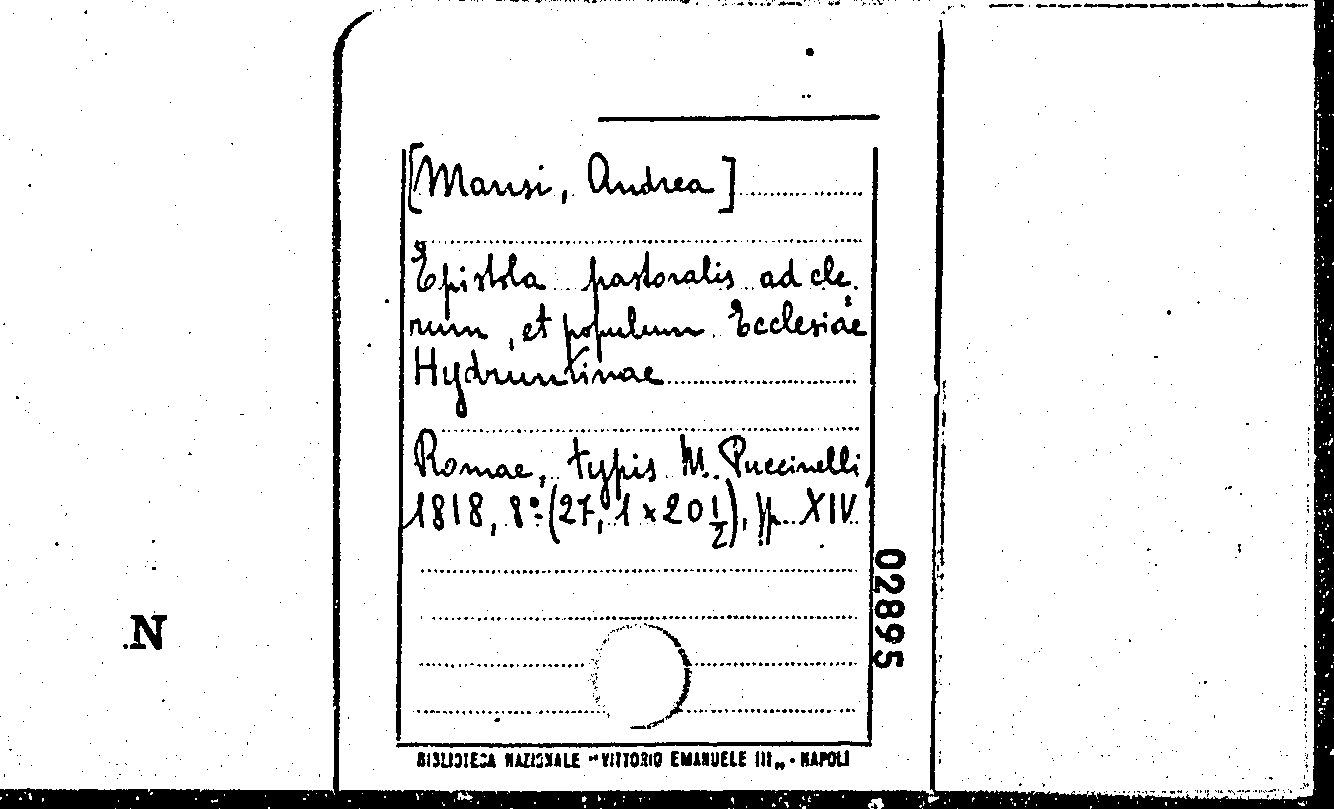 [Mansi, Andrea]
Epistola pastoralis ad cle-
rum, et populum Ecclesiae
Hydruntinae
Romae, typis M. Puccinelli,
1818, 8º (27,1 x 20 1/2), pp. XIV
02895
N
BIBLIOTECA NAZIONALE "VITTORIO EMANUELE III„ - NAPOLI